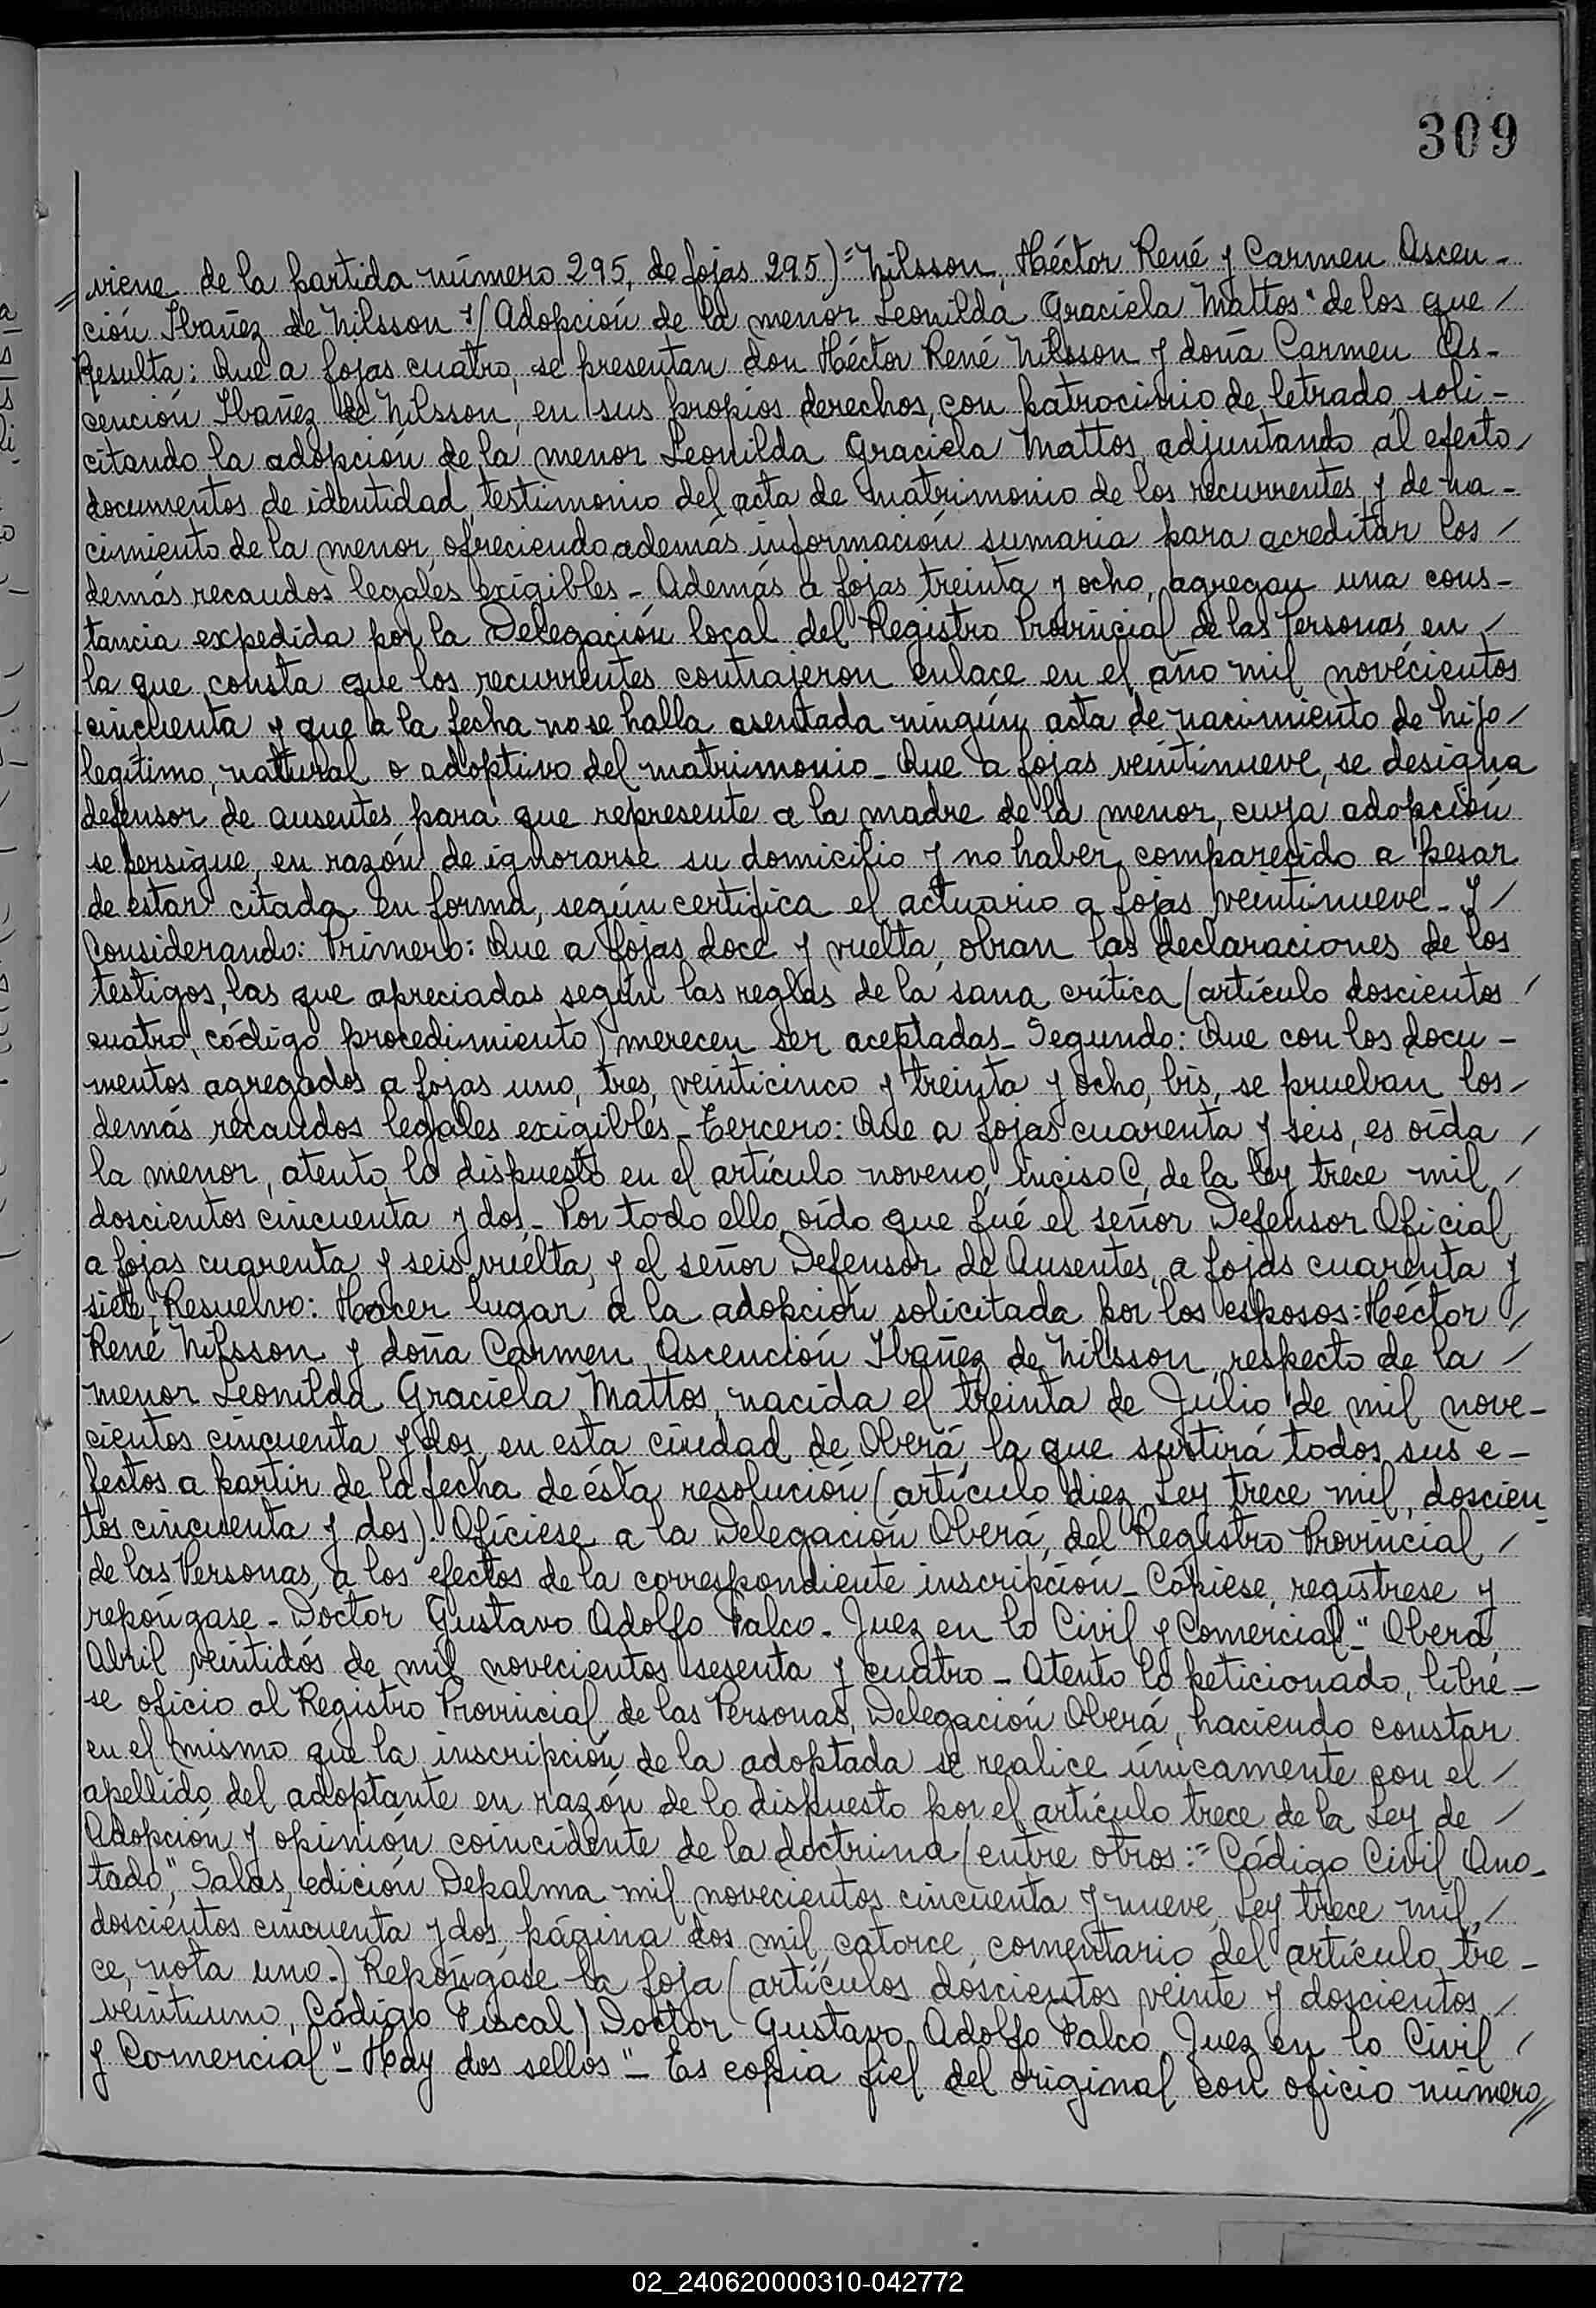 309
=viene de la partida número 295, de fojas 295)=Nilsson, Héctor René y Carmen Ascen-
ción Ibañez de Nilsson s/Adopción de la menor Leonilda Graciela Mattos" de los que/
Resulta: Que a fojas cuatro, se presentan don Héctor René Nilsson y doña Carmen As-
cención Ibañez de Nilsson, en sus propios derechos, con patrocinio de letrado, soli-
citando la adopción de la menor Leonilda Graciela Mattos, adjuntando al efecto/
documentos de identidad, testimonio del acta de matrimonio de los recurrentes, y de na-
cimiento de la menor, ofreciendo además información sumaria para acreditar los/
demás recaudos legales exigibles- Además a fojas treinta y ocho, agregan una cons-
tancia expedida por la Delegación local del Registro Provincial de las Personas, en/
la que consta que los recurrentes contrajeron enlace en el año mil novecientos
cincuenta y que a la fecha no se halla asentada ningún acta de nacimiento de hijo/
legítimo, natural o adoptivo del matrimonio- Que a fojas veintinueve, se designa
defensor de ausentes para que represente a la madre de la menor, cuya adopción
se persigue, en razón de ignorarse su domicilio y no haber comparecido a pesar
de estar citada en forma, según certifica el actuario a fojas veintinueve- Y/
Considerando: Primero: Que a fojas doce y vuelta, obran las declaraciones de los
testigos, las que apreciadas según las reglas de la sana crítica (artículo doscientos/
cuatro, código procedimiento) merecen ser aceptadas- Segundo: Que con los docu-
mentos agregados a fojas uno, tres, veinticinco y treinta y ocho, bis, se prueban los/
demás recaudos legales exigibles- Tercero: Que a fojas cuarenta y seis, es oída/
la menor, atento lo dispuesto en el artículo noveno, inciso C, de la ley trece mil/
doscientos cincuenta y dos- Por todo ello, oído que fué el señor Defensor Oficial
a fojas cuarenta y seis vuelta, y el señor Defensor de Ausentes, a fojas cuarenta y
siete, Resuelvo: Hacer lugar a la adopción solicitada por los esposos: Héctor/
René Nilsson y doña Carmen Ascención Ibañez de Nilsson, respecto de la/
menor Leonilda Graciela Mattos, nacida el treinta de Julio de mil nove-
cientos cincuenta y dos, en esta ciudad de Oberá, la que surtirá todos sus e-
fectos a partir de la fecha de ésta resolución (artículo diez, Ley trece mil, doscien-
tos cincuenta y dos). Ofíciese a la Delegación Oberá, del Registro Provincial/
de las Personas, a los efectos de la correspondiente inscripción- Cópiese, regístrese y
repóngase- Doctor Gustavo Adolfo Palco- Juez en lo Civil y Comercial-" Oberá,
Abril veintidós de mil novecientos sesenta y cuatro- Atento lo peticionado, libre-
se oficio al Registro Provincial, de las Personas, Delegación Oberá, haciendo constar
en el mismo que la inscripción de la adoptada se realice únicamente con el/
apellido del adoptante en razón de lo dispuesto por el artículo trece de la Ley de/
Adopción y opinión coincidente de la doctrina (entre otros:= Código Civil Ano-
tado," Salas, edición Depalma mil novecientos cincuenta y nueve, Ley trece mil,/
doscientos cincuenta y dos, página dos mil, catorce, comentario del artículo tre-
ce, nota uno-) Repóngase la foja (artículos doscientos veinte y doscientos/
veintiuno, Código Fiscal) Doctor Gustavo Adolfo Palco, Juez en lo Civil/
y Comercial"- Hay dos sellos"- Es copia fiel del original con oficio número//
02_240620000310-042772